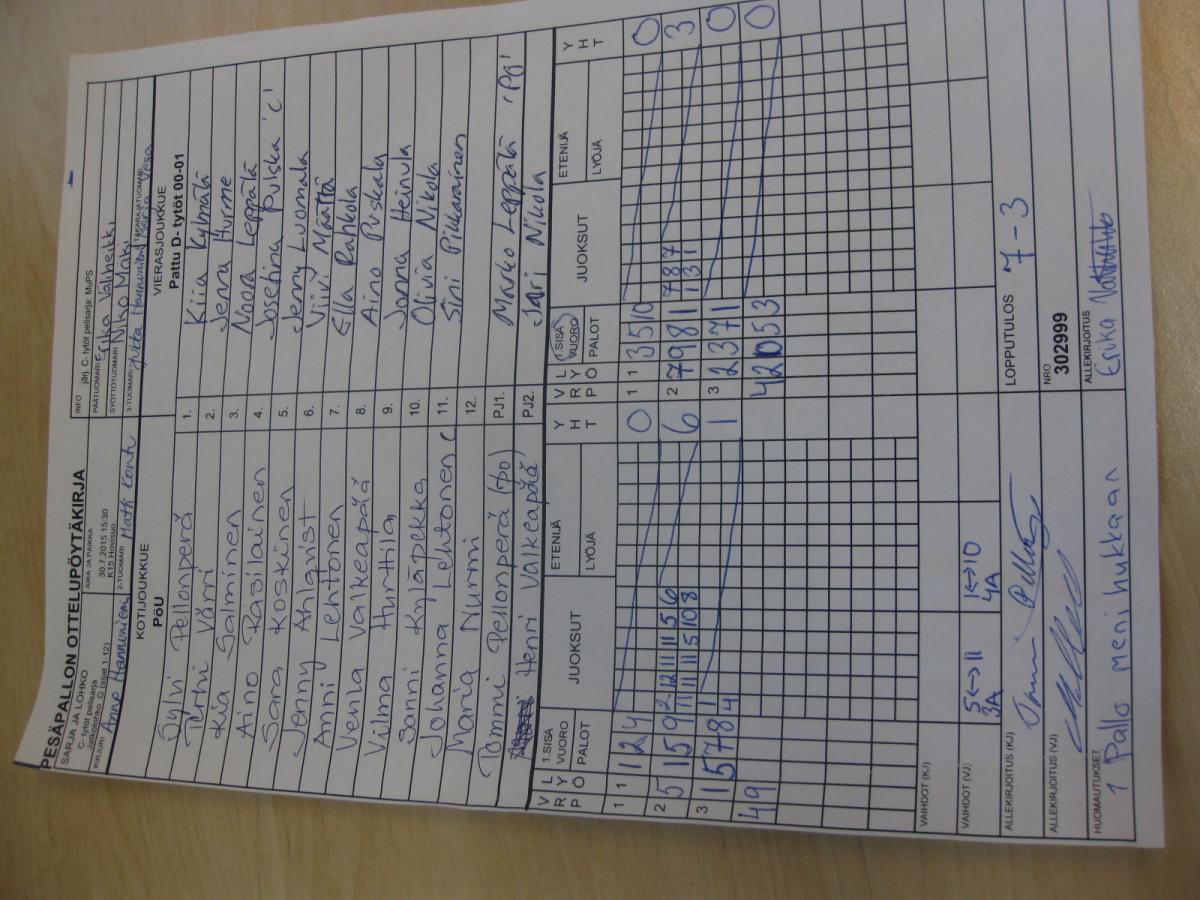 PESÄPALLON OTTELUPÖYTÄKIRJA
SARJA JA LOHKO
C- tytöt pelisarja
Jatkolohko G (sijat 1-12)
AIKA JA PAIKKA
30.7.2015 15:30
K15 Hovisuo
INFO järj. C- tytöt pelisarja: MuPS
PÄÄTUOMARI Erika Väliheikki
SYÖTTÖTUOMARI Niko Mäki
KIRJURI Anne Hannuniemi
2-TUOMARI Matti Kontu
3-TUOMARI Jutta Hannuniemi
TAKARAJATUOMARI Marja
KOTIJOUKKUE
PöU
VIERASJOUKKUE
Pattu D- tytöt 00-01
Sylvi Pellonperä 1. Kiia Kylmätä
Perttu Väri 2. Jenna Hurme
Kia Salminen 3. Noora Leppälä
Aino Räsiläinen 4. Josefina Pulska 'C'
Sara Koskinen 5. Jenny Luomala
Jenny Ahlqvist 6. Viivi Määttä
Anni Lehtonen 7. Ella Rahkola
Jenna Valkeapää 8. Aino Puskala
Vilma Hurttila 9. Janna Heinula
Sanni Kyläpekka 10. Olivia Nikola
Johanna Lehtonen C 11. Sini Pikkarainen
Maria Nurmi 12.
Tommi Pellonperä (po) PJ1. Marko Leppälä 'PO'
Henri Valkeapää PJ2. Jari Nikola
V R P L Y Ö 1.SISÄ VUORO PALOT JUOKSUT ETENIJÄ LYÖJÄ Y H T V R P L Y Ö 1.SISÄ VUORO PALOT JUOKSUT ETENIJÄ LYÖJÄ Y H T
1 1 1 2 4 0 1 1 3 5 10 0
2 5 1 5 9 2 12 11 11 5 6 6 2 7 9 8 1 7 8 7 3
11 11 11 5 10 8 1 3 1
3 1 5 7 8 1 1 3 2 3 7 1 0
4
4 9 4 2 0 5 3 0
VAIHDOT (KJ)
VAIHDOT (VJ) 5↔11 3A 1↔10 4A
ALLEKIRJOITUS (KJ)
LOPPUTULOS 7-3
ALLEKIRJOITUS (VJ)
NRO
302999
HUOMAUTUKSET
1 Pallo meni hukkaan
ALLEKIRJOITUS
Erika